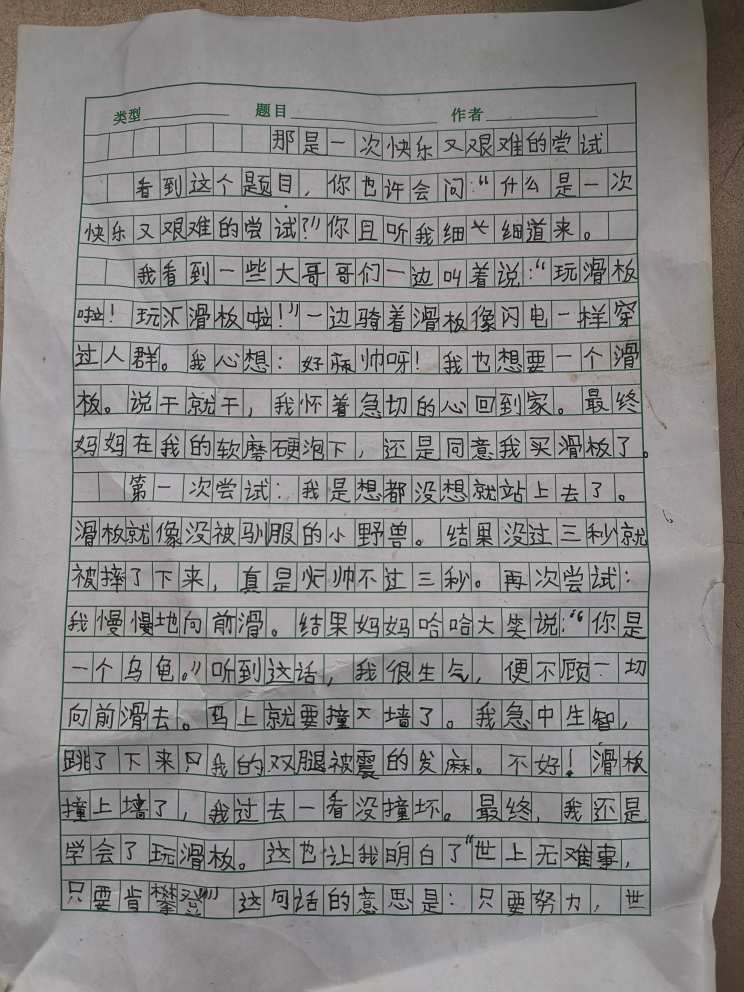 类型 题目 作者
那是一次快乐又艰难的尝试
看到这个题目，你也许会问：“什么是一次
快乐又艰难的尝试？”你且听我细细道来。
我看到一些大哥哥们一边叫着说：“玩滑板
啦！玩滑板啦！”一边骑着滑板像闪电一样穿
过人群。我心想：好帅呀！我也想要一个滑
板。说干就干，我怀着急切的心回到家。最终
妈妈在我的软磨硬泡下，还是同意我买滑板了。
第一次尝试：我是想都没想就站上去了。
滑板就像没被驯服的小野兽。结果没过三秒就
被摔了下来，真是帅不过三秒。再次尝试：
我慢慢地向前滑。结果妈妈哈哈大笑说：“你是
一个乌龟。”听到这话，我很生气，便不顾一切
向前滑去。马上就要撞墙了。我急中生智，
跳了下来只我的双腿被震的发麻。不好！滑板
撞上墙了，我过去一看没撞坏。最终，我还是
学会了玩滑板。这也让我明白了“世上无难事，
只要肯攀登”这句话的意思是：只要努力，世